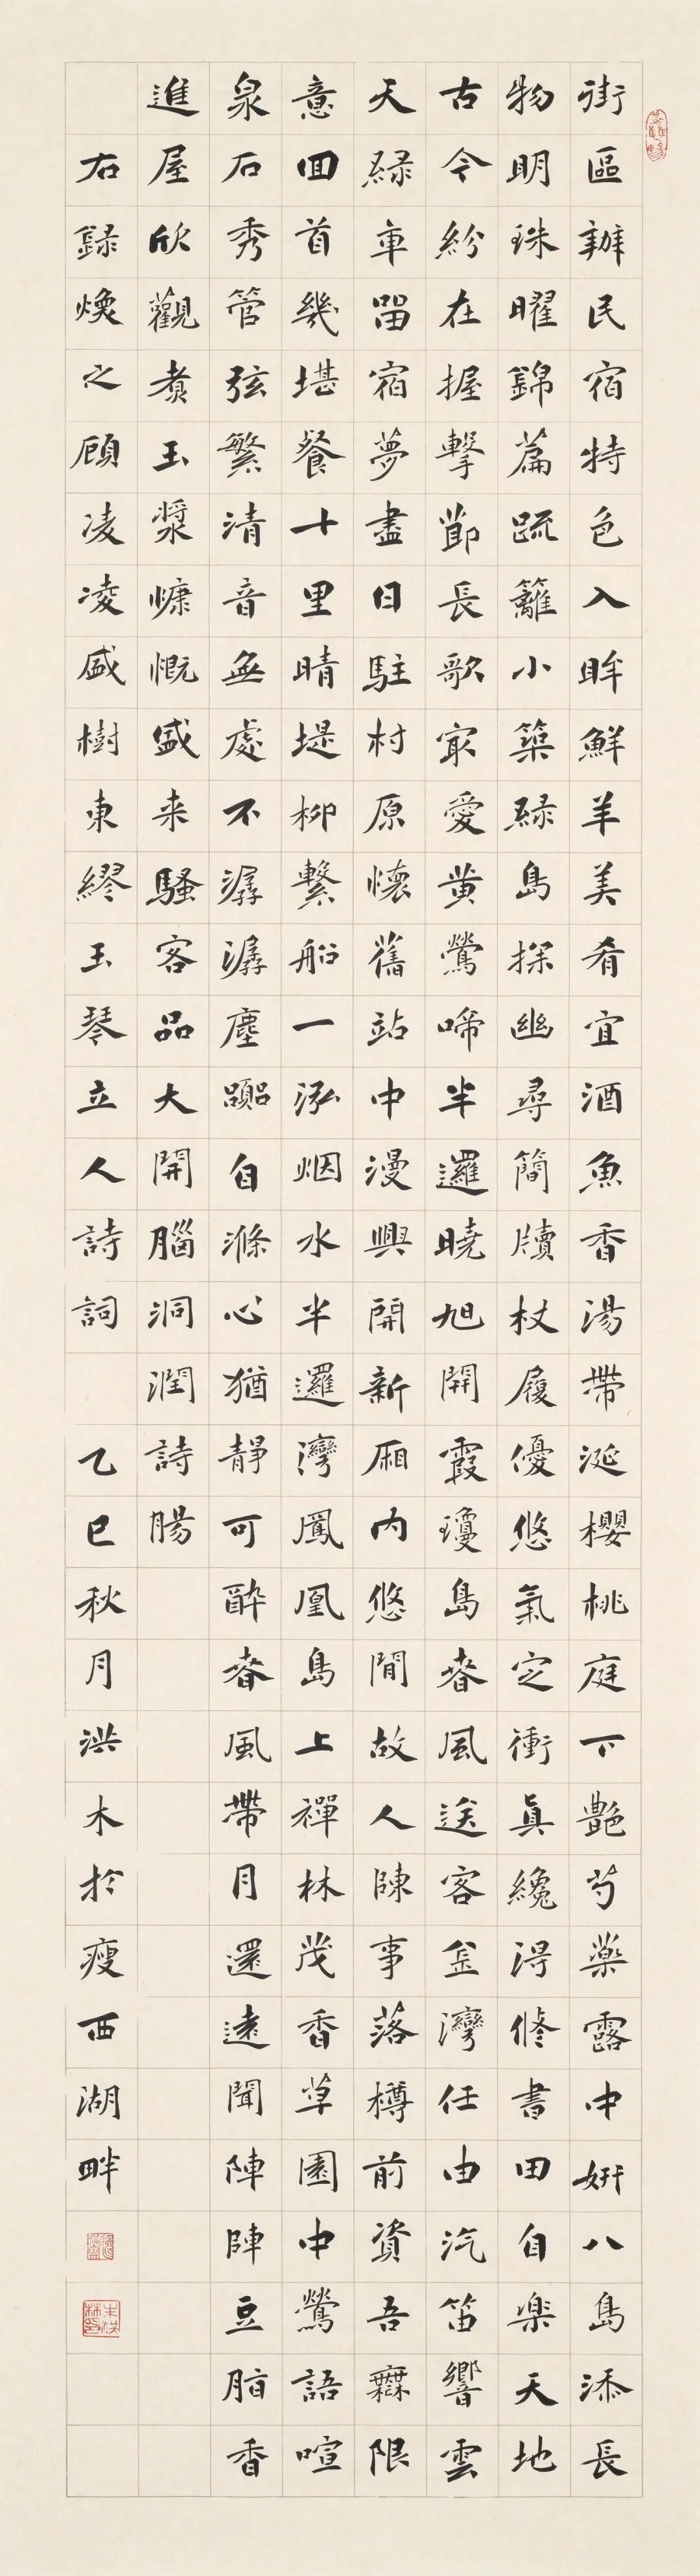 街區辦民宿特色入眸鮮羊美肴宜酒魚香湯帶涎櫻桃庭下艷芍藥露中妍八島添長
物明珠曜錦篇疏籬小築綠島探幽尋簡牘杖履優悠氣定衝真纔淂修書田自樂天地
古今紛在握擊節長歌寂愛黄鶯啼半邏曉旭開霞瓊島春風送客金灣任由汽笛響雲
天緑車留宿夢盡日駐村原懷舊站中漫興開新厢内悠閒故人陳事落樽前資吾無限
意回首幾堪餐十里晴堤柳繫船一泓烟水半邏灣鳳凰島上禪林茂香草園中鶯語喧
泉石秀管弦繁清音無處不潺潺塵囂自滌心猶静可酔春風帶月還遠聞陣陣豆脂香
進屋欣觀煮玉漿慷慨盛来騷客品大開腦洞潤詩腸
右錄煥之顧凌凌盛樹東繆玉琴立人詩詞 乙巳秋月洪木於瘦西湖畔